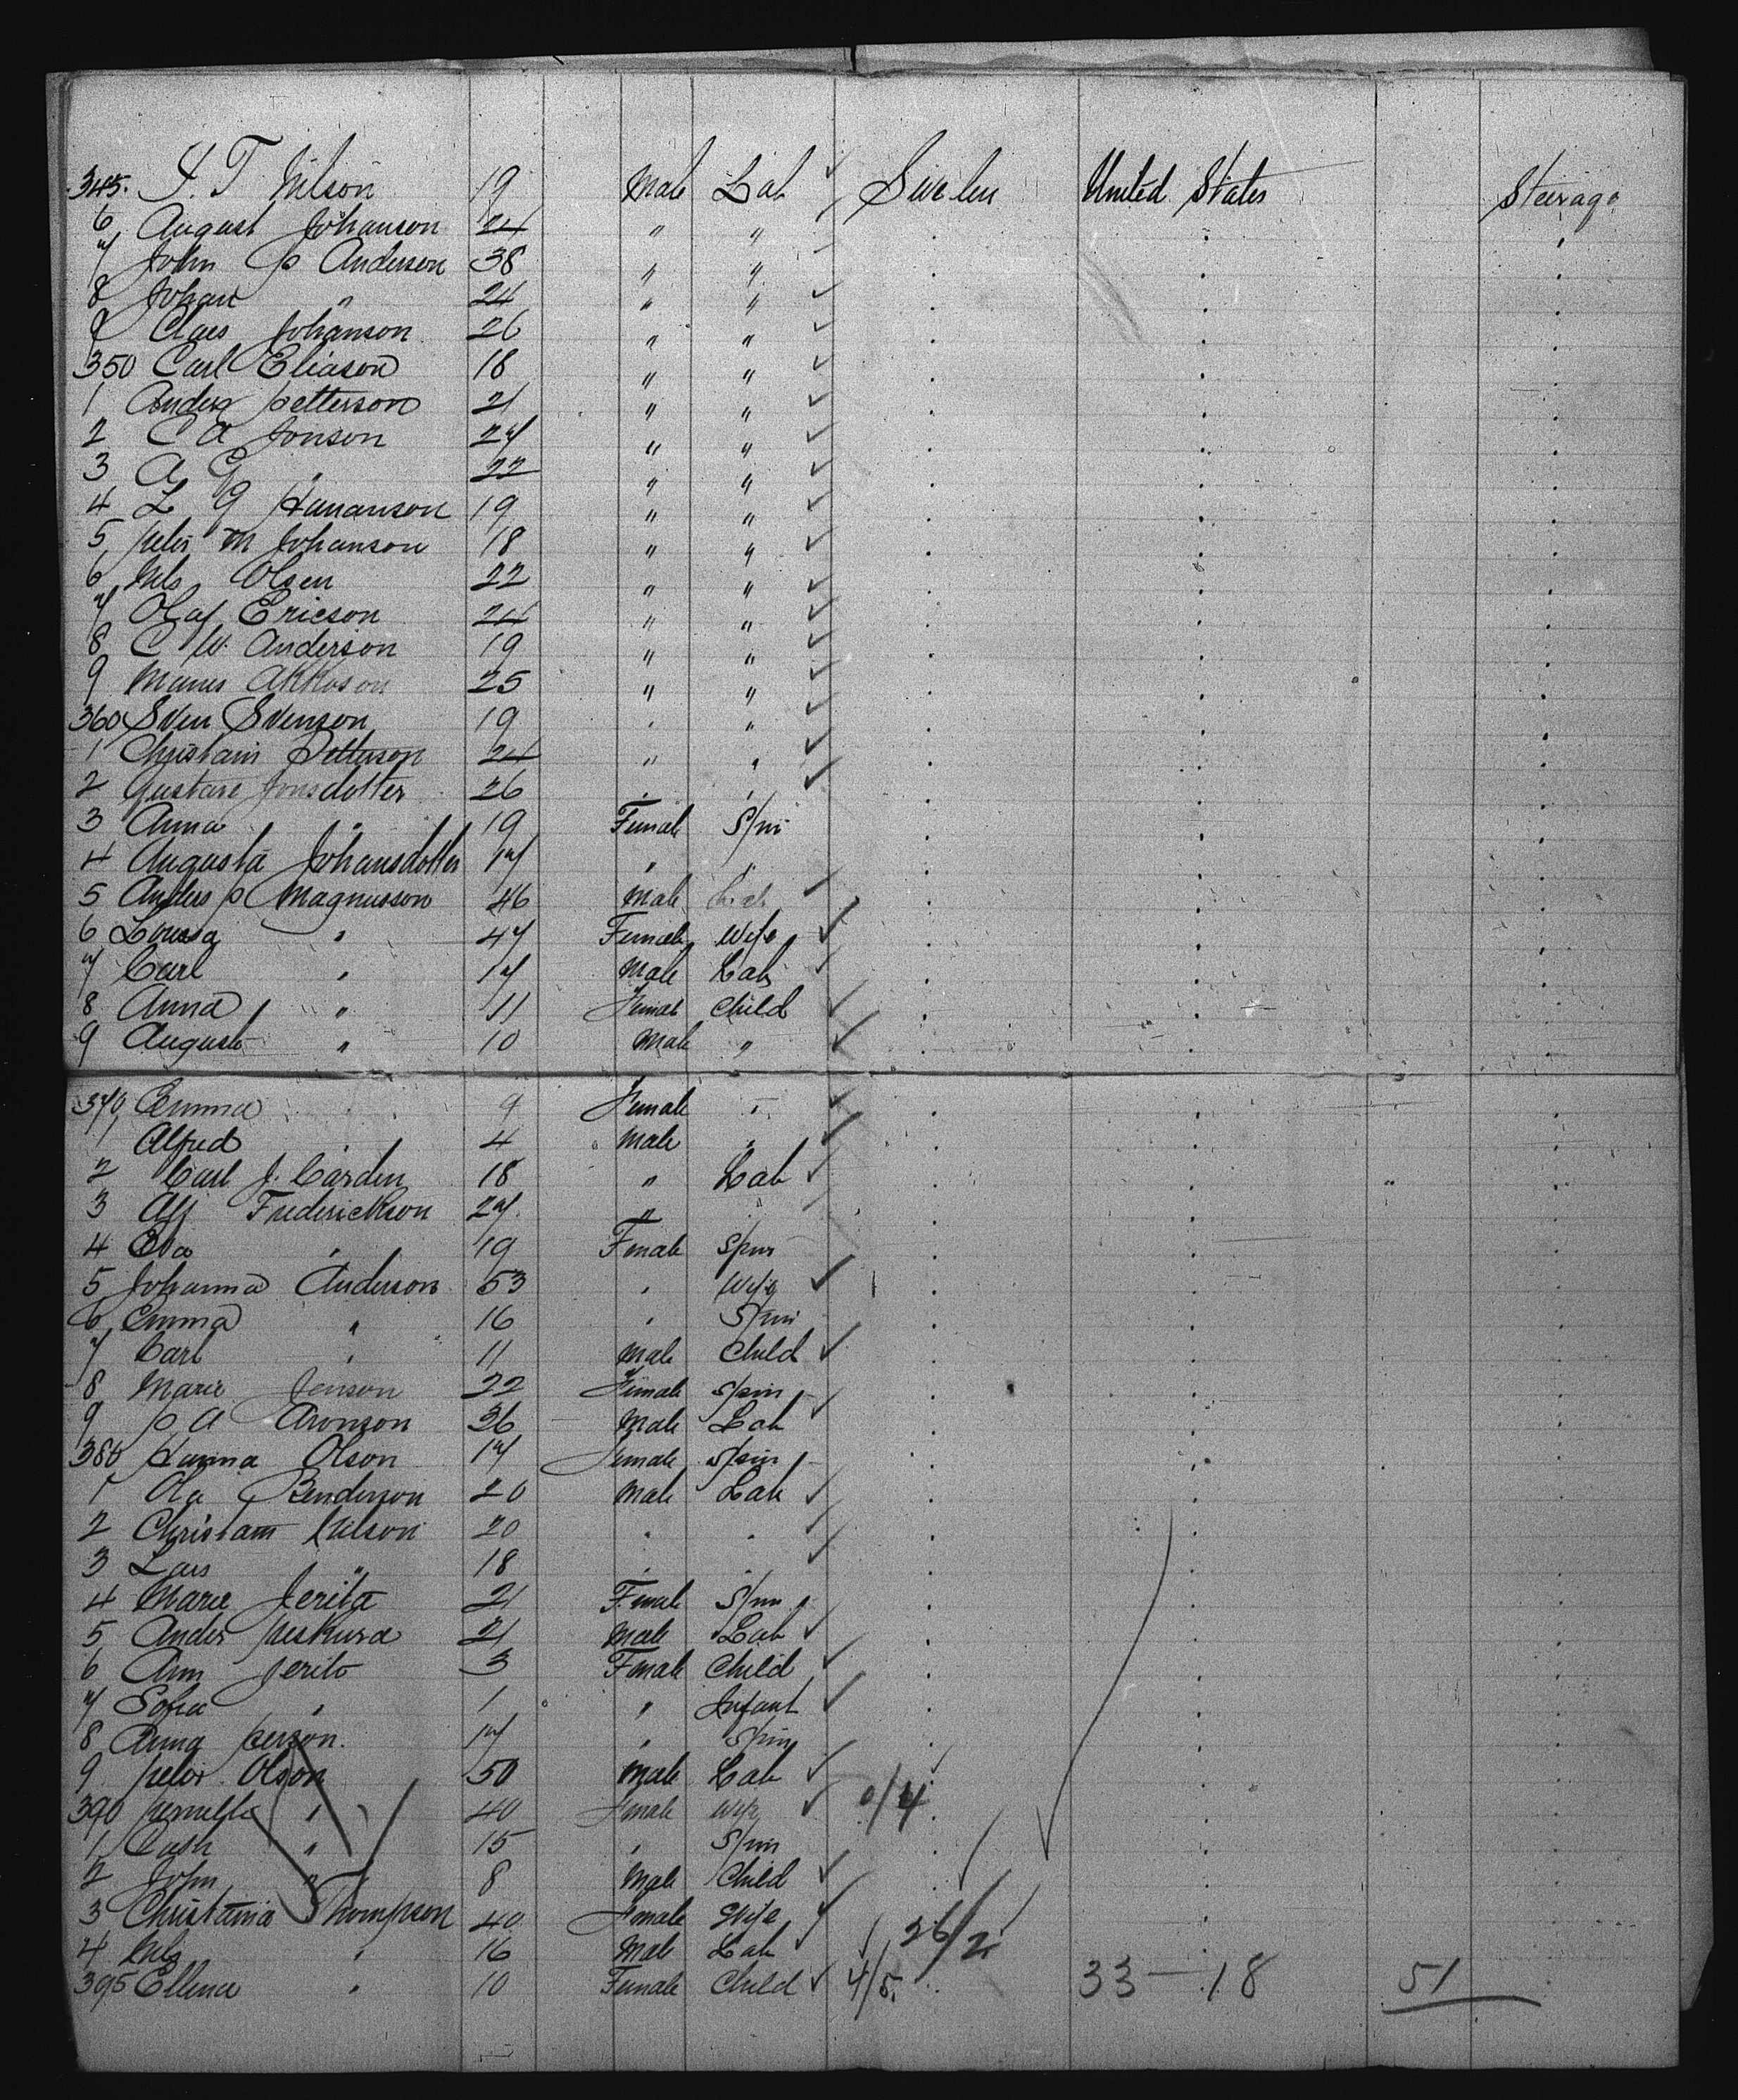 345. A. T Nilson 19 Male Lab Sweden United States Steerage
6 August Johanson 24 " "
7 John P Anderson 38 " "
8 Johan " 24 " "
9 Claes Johanson 26 " "
350 Carl Eliason 18 " "
1 Anders Petterson 21 " "
2 C A Jonson 27 " "
3 A G " 22 " "
4 L G Hananson 19 " "
5 Peter M Johanson 18 " "
6 Nils Olsen 22 " "
7 Olaf Ericson 24 " "
8 C W. Anderson 19 " "
9 Manus 25 " "
360 Sven Svenson 19 " "
1 Christain Petterson 24 " "
2 Gustave Jonsdotter 26 " "
3 Anna " 19 Female Spin
4 Augusta Johansdotter 17 " "
5 Anders P Magnusson 46 Male Lab
6 Lovisa " 47 Female Wife
7 Carl " 17 Male Lab
8 Anna " 11 Female Child
9 August " 10 Male "
370 Emma " 9 Female "
1 Alfred " 4 Male "
2 Carl J. Carden 18 " Lab
3 Alf Frederickson 27 " "
4 Eva " 19 Female Spin
5 Johanna Anderson 53 " Wife
6 Emma " 16 " Spin
7 Carl " 11 Male Child
8 Marie Jenson 22 Female Spin
9 P A Aronson 36 Male Lab
380 Hanna Olson 17 Female Spin
1 Ola Benderson 20 Male Lab
2 Christain Nilson 20 " "
3 Lars " 18 " "
4 Marie Jerita 21 Female Spin
5 Ander Peskura 21 Male Lab
6 Ann Jerito 3 Female Child
7 Sofia " 1 " Infant
8 Anna Person. 17 " Spin
9 Peter Olson 50 Male Lab
390 Pernilla " 40 Female Wife 0/4
1 " 15 " Spin
2 John " 8 Male Child
3 Christania Thompson 40 Female Wife
4 Nils " 16 Male Lab 26/2
395 Ellena " 10 Female Child 4/5. 33 - 18 51